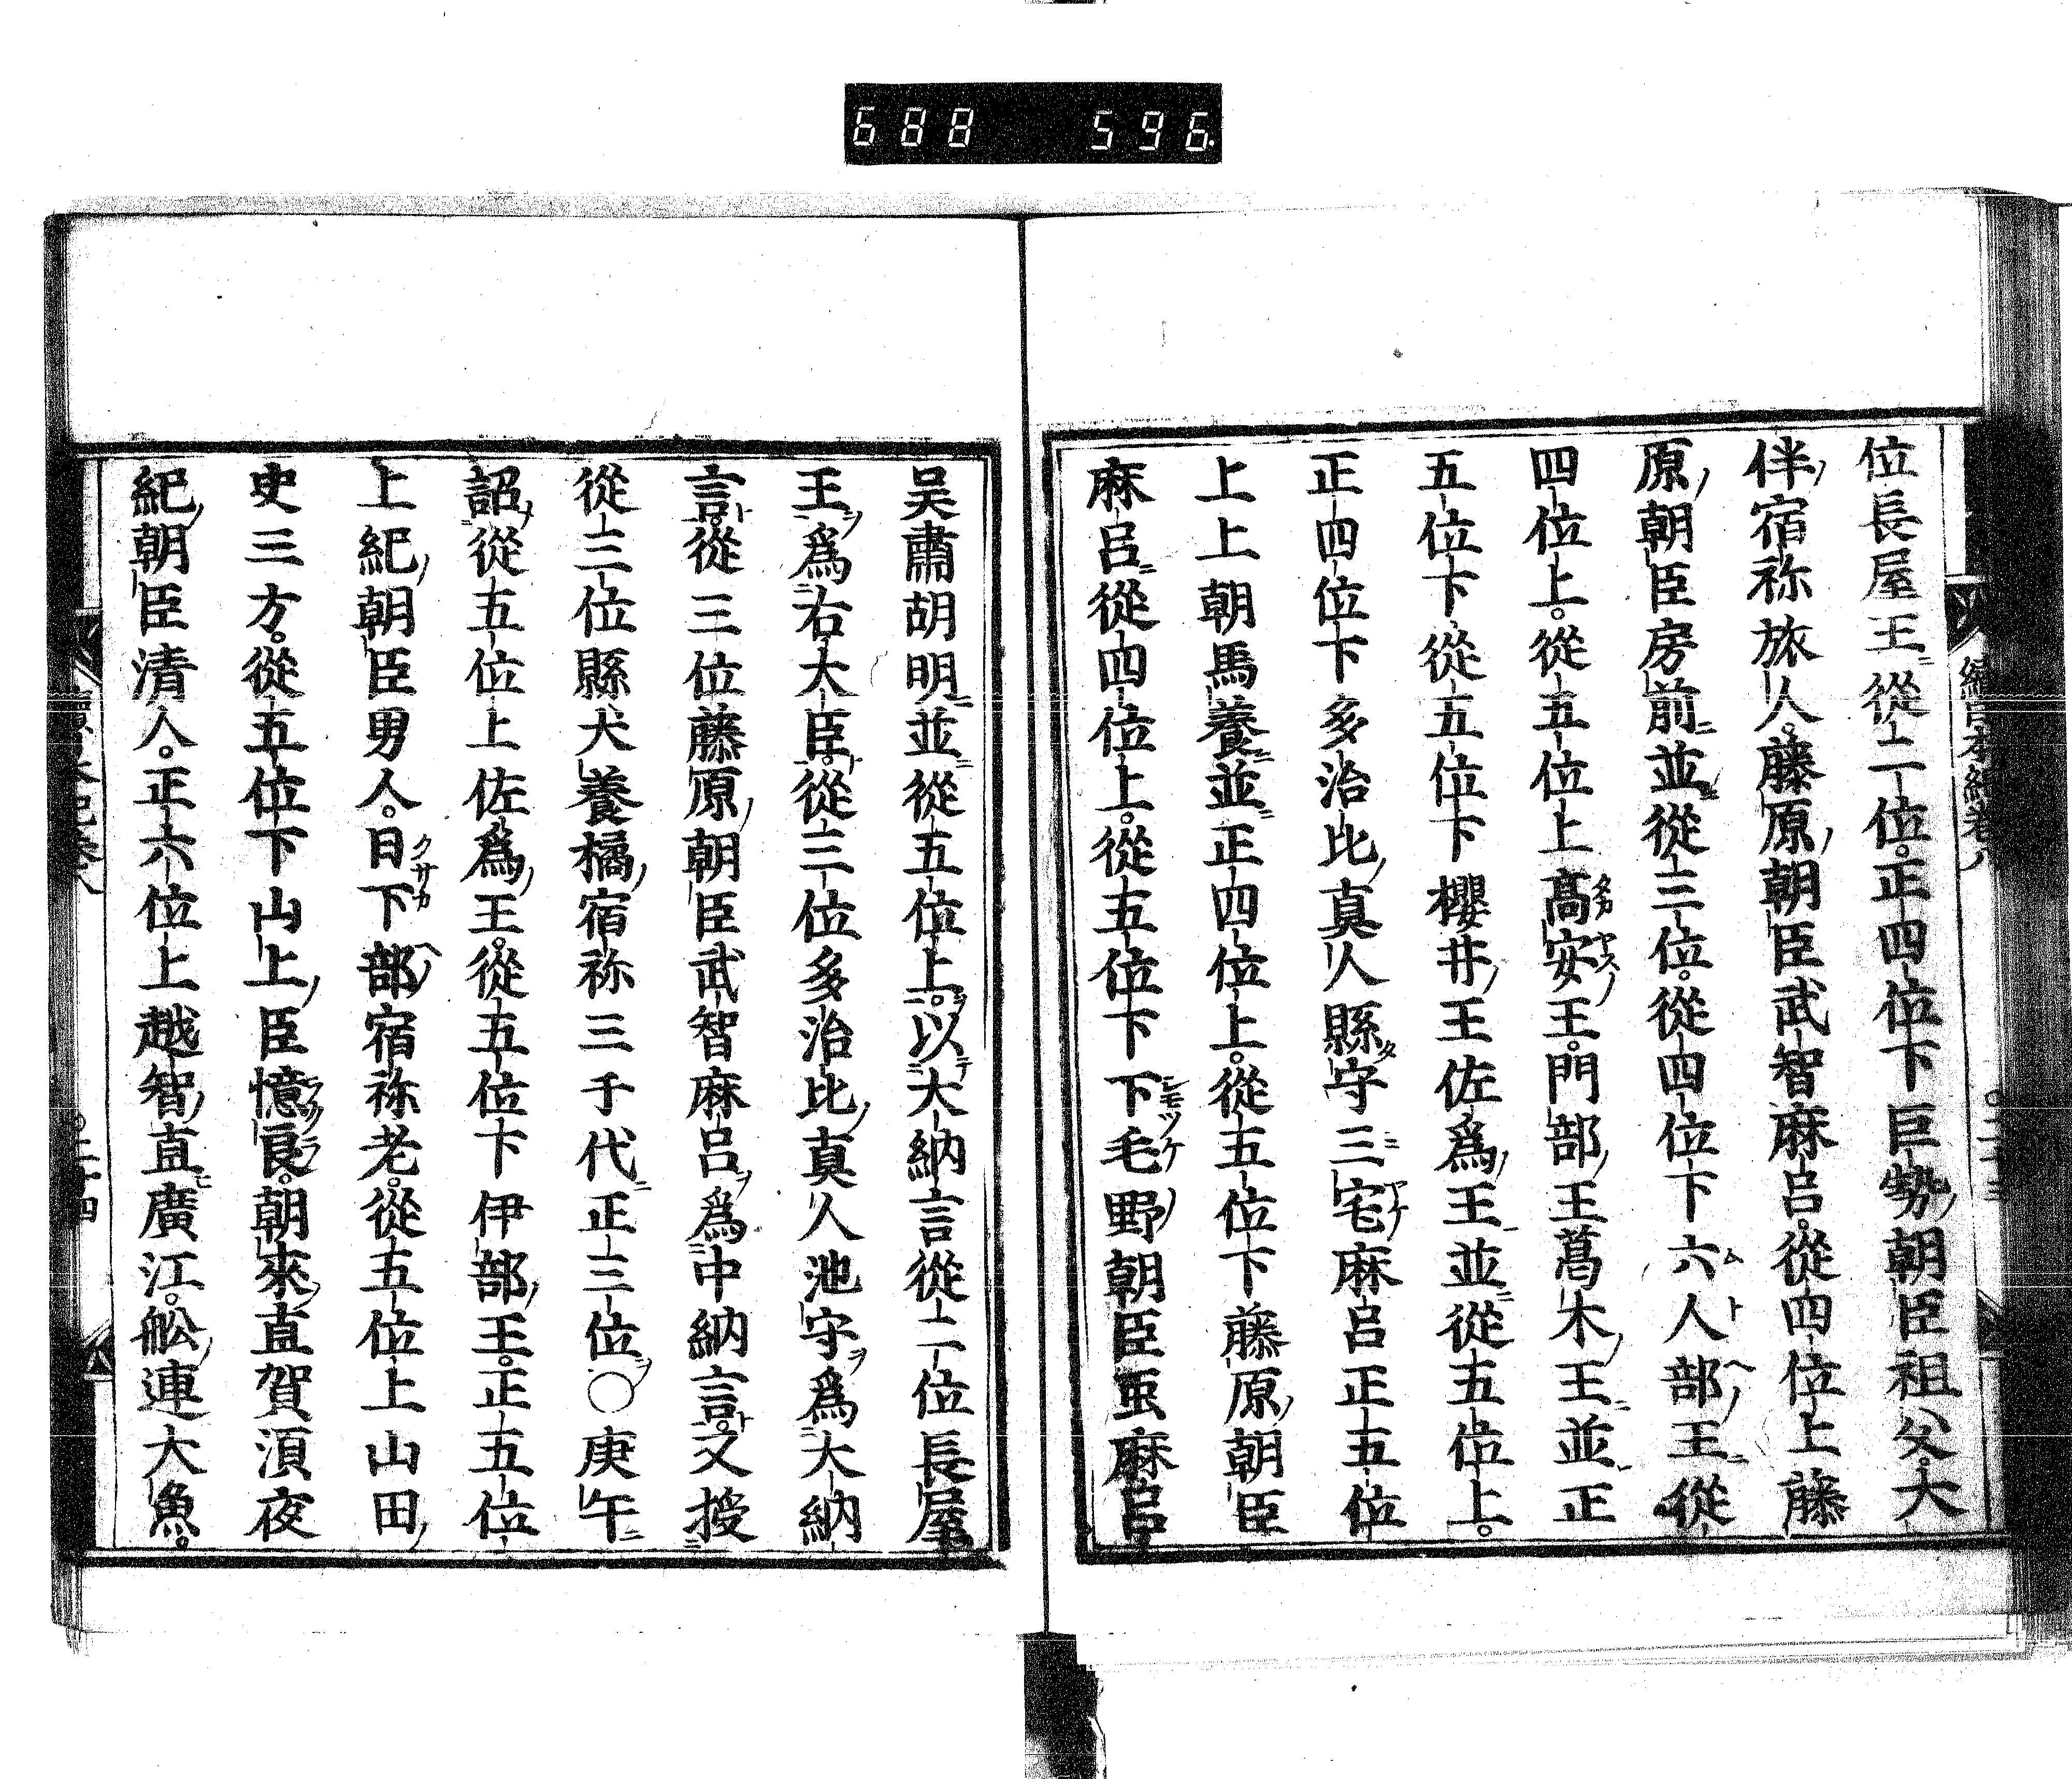 688 596.
位長屋王從二位。正四位下巨勢朝臣祖父。大
伴宿祢旅人。藤原朝臣武智麻呂。從四位上藤
原朝臣房前並從三位。從四位下六人部王從
四位上。從五位上高安王。門部王葛木王並正
五位下從五位下櫻井王佐爲王並從五位上。
正四位下多治比真人縣守三宅麻呂正五位
上上朝馬養並正四位上。從五位下藤原朝臣
麻呂從四位上。從五位下下毛野朝臣虫麻呂
吳肅胡明並從五位上。以大納言從二位長屋
王爲右大臣。從三位多治比真人池守爲大納
言。從三位藤原朝臣武智麻呂爲中納言。又授
從三位縣犬養橘宿祢三千代正三位〇庚午
詔從五位上佐爲王。從五位下伊部王。正五位
上紀朝臣男人。日下部宿祢老。從五位上山田
史三方。從五位下山上臣憶良。朝來直賀須夜
紀朝臣清人。正六位上越智直廣江。舩連大魚。